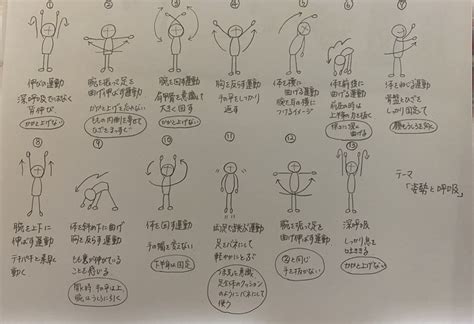 ①
伸びの運動
深呼吸ではなく
背伸び
かかと上げない
②
腕を振って足を
曲げ伸ばす運動
かかと上げを止めない
ももの内側を寄せて
ひざまっすぐ
③
腕を回す運動
肩甲骨を意識して
大きく回す
かかと上げない
④
胸を反らす運動
手の平をしっかり
返す
⑤
体を横に
曲げる運動
腕を耳の横に
つけるイメージ
⑥
体を前後に
曲げる運動
前屈の時は
上半身の力を抜く
後ろに
曲げる
⑦
体をねじる運動
骨盤とひざを
しっかり固定して
顔もうしろを向く
⑧
腕を上下に
伸ばす運動
テキパキと素早く
動く
⑨
体を斜め下に曲げ
胸を反らす運動
もも裏が伸びている
ことを感じる
胸の時 手の平は上
腕はうしろに引く
⑩
体を回す運動
手の幅を変えない
下半身は固定
⑪
両足で跳ぶ運動
足をバネにして
軽やかにとぶ
足全体のクッション
のようにバネにして
使う
⑫
腕を振って足を
曲げ伸ばす運動
②と同じ
手を抜かない
⑬
深呼吸
しっかり息を
はききる
かかと上げない
テーマ
「姿勢と呼吸」